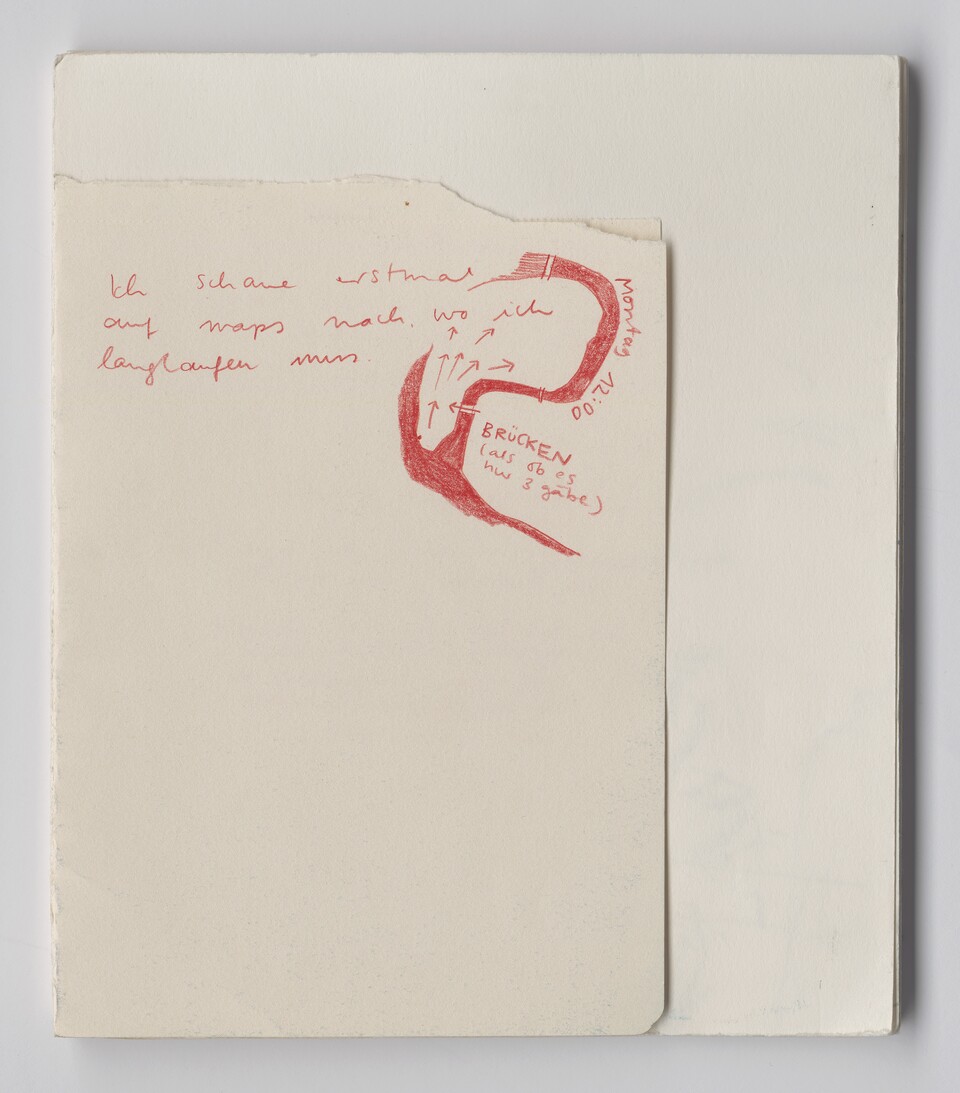 Ich schaue erstmal
auf maps nach, wo ich
langlaufen muss.
Montag 12:00
BRÜCKEN
(als ob es
nur 3 gäbe)